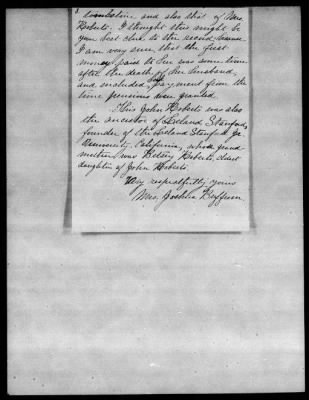 and also that of Mrs.
Roberts. I thought this might be
your best clue to the record, because
I am very sure, that the first
money paid to her was some time
after the death of her husband,
and included payment from the
time pensions were granted.
This John Roberts was also
the ancestor of Leland Stanford,
founder of the Leland Stanford Jr.
University, California, whose grand
mother was Betsey Roberts, eldest
daughter of John Roberts.
Very respectfully yours
Mrs.